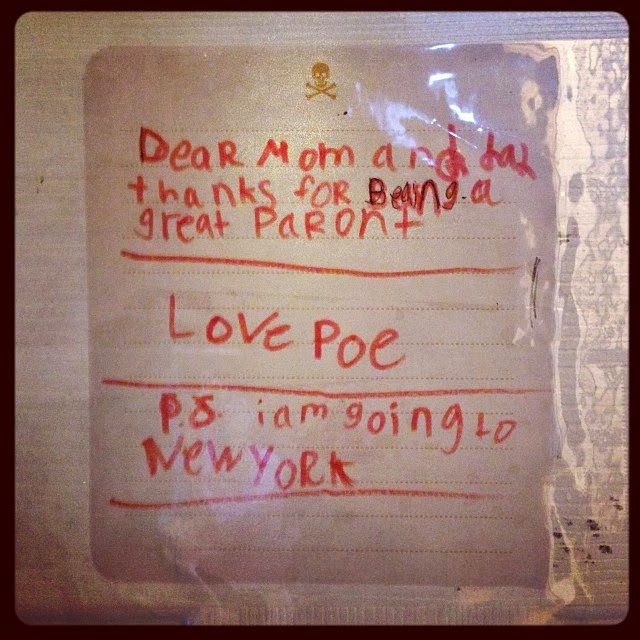 Dear Mom and dad
thanks for Being a
great Paront
Love Poe
P.S. i am going to
New York